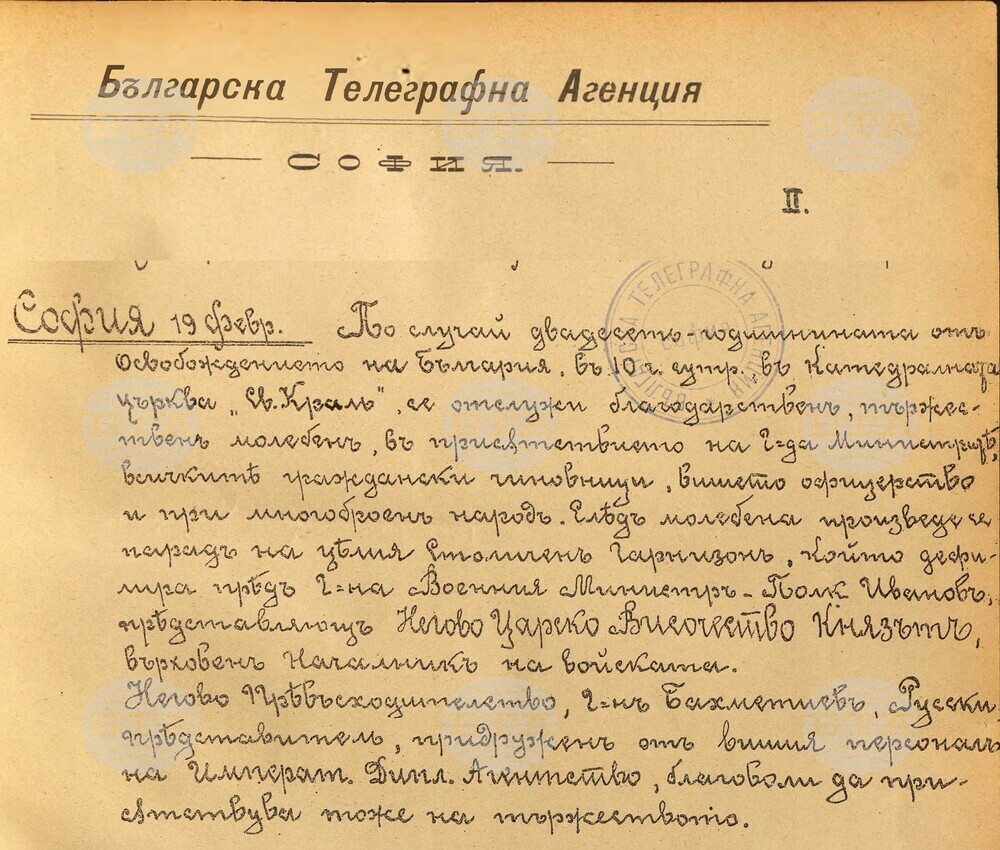 Българска Телеграфна Агенция
СОФИЯ.
II.
София 19 Февр. По случай двадесетъ-годишнината отъ
Освобождението на България, въ 10 ч. сутр., въ Катедралната
църква „Св. Краль“, се отслужи благодарственъ, тържес-
твенъ молебенъ, въ присѫтствието на Г-да Министритѣ,
всичкитѣ граждански чиновници, висшето офицерство
и при многоброенъ народъ. Слѣдъ молебена произведе се
парадъ на цѣлия Столиченъ Гарнизонъ, който дефи-
лира прѣдъ Г-на Военния Министръ - Полк Ивановъ,
прѣдставляющъ Негово Царско Височество Князътъ,
върховенъ Началникъ на войската.
Негово Прѣвъсходителство, Г-нъ Бахметиевъ, Русски
прѣдставитель, придруженъ отъ висшия персоналъ
на Императ. Дипл. Агентство, благоволи да при-
сѫтствува тоже на тържеството.
ТЕЛЕГРАФНА
БТА